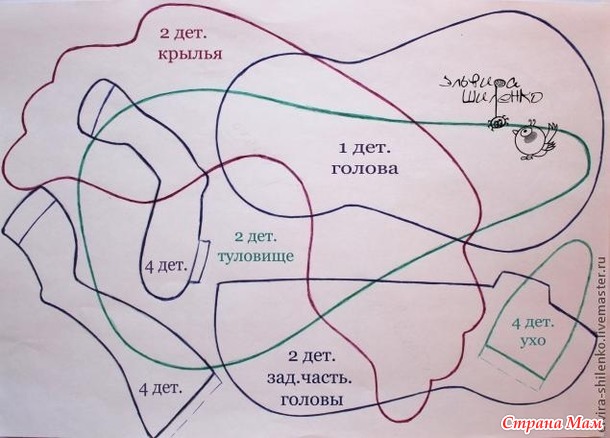 2 дет.
крылья
эльвира
шиленко
1 дет.
голова
4 дет.
2 дет.
туловище
4 дет.
ухо
2 дет.
зад.часть.
головы
4 дет.
elvira-shilenko.livemaster.ru
Страна Мам